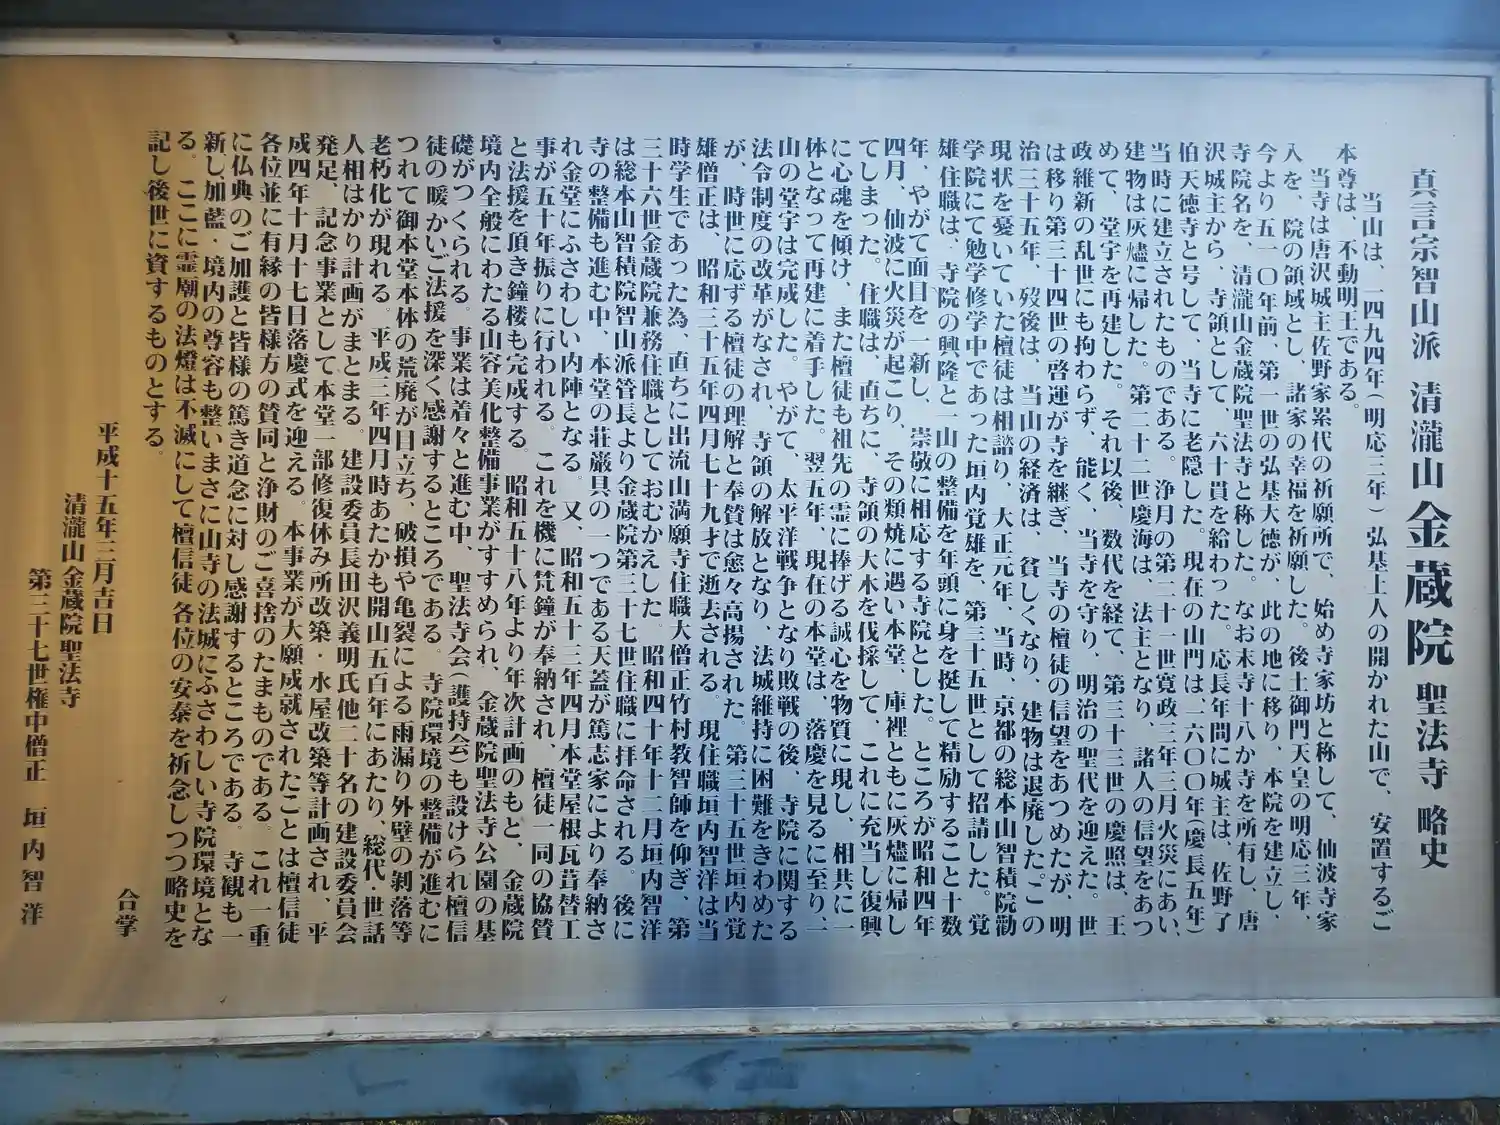 真言宗智山派 清瀧山 金蔵院 聖法寺 略史
当山は、一四九四年(明応三年)弘基上人の開かれた山で、安置するご
本尊は、不動明王である。
当寺は唐沢城主佐野家累代の祈願所で、始め寺家坊と称して、仙波寺家
入を、院の領域とし、諸家の幸福を祈願した。後土御門天皇の明応三年、
今より五一〇年前、第一世の弘基大徳が、此の地に移り、本院を建立し、
寺院名を、清瀧山金蔵院聖法寺と称した。なお末寺十八か寺を所有し、唐
沢城主から、寺領として、六十貫を給わった。応長年間に城主は、佐野了
伯天徳寺と号して、当寺に老隠した。現在の山門は一六〇〇年(慶長五年)
当時に建立されたものである。浄月の第二十一世寛政三年三月火災にあい、
建物は灰燼に帰した。第二十二世慶海は、法主となり、諸人の信望をあつ
めて、堂宇を再建した。それ以後、数代を経て、第三十三世の慶照は、王
政維新の乱世にも拘わらず、能く、当寺を守り、明治の聖代を迎えた。世
は移り第三十四世の啓運が寺を継ぎ、当寺の檀徒の信望をあつめたが、明
治三十五年、歿後は、当山の経済は、貧しくなり、建物は退廃した。この
現状を憂いていた檀徒は相諮り、大正元年、当時、京都の総本山智積院勧
学院にて勉学修学中であった垣内覚雄を、第三十五世として招請した。覚
雄住職は、寺院の興隆と一山の整備を年頭に身を挺して精励すること十数
年、やがて面目を一新し、崇敬に相応する寺院とした。ところが昭和四年
四月、仙波に火災が起こり、その類焼に遇い本堂、庫裡ともに灰燼に帰し
てしまった。住職は、直ちに、寺領の大木を伐採して、これに充当し復興
に心魂を傾け、また檀徒も祖先の霊に捧げる誠心を物質に現し、相共に一
体となって再建に着手した。翌五年、現在の本堂は、落慶を見るに至り、一
山の堂宇は完成した。やがて、太平洋戦争となり敗戦の後、寺院に関する
法令制度の改革がなされ、寺領の解放となり、法城維持に困難をきわめた
が、時世に応ずる檀徒の理解と奉賛は愈々高揚された。第三十五世垣内覚
雄僧正は、昭和三十五年四月七十九才で逝去される。現住職垣内智洋は当
時学生であった為、直ちに出流山満願寺住職大僧正竹村教智師を仰ぎ、第
三十六世金蔵院兼務住職としておむかえした。昭和四十年十二月垣内智洋
は総本山智積院智山派管長より金蔵院第三十七世住職に拝命される。後に
寺の整備も進む中、本堂の荘厳具の一つである天蓋が篤志家により奉納さ
れ金堂にふさわしい内陣となる。又、昭和五十三年四月本堂屋根瓦葺替工
事が五十年振りに行われる。これを機に梵鐘が奉納され、檀徒一同の協賛
と法援を頂き鐘楼も完成する。昭和五十八年より年次計画のもと、金蔵院
境内全般にわたる山容美化整備事業がすすめられ、金蔵院聖法寺公園の基
礎がつくられる。事業は着々と進む中、聖法寺会(護持会)も設けられ檀信
徒の暖かいご法援を深く感謝するところである。寺院環境の整備が進むに
つれて御本堂本体の荒廃が目立ち、破損や亀裂による雨漏り外壁の剥落等
老朽化が現れる。平成三年四月時あたかも開山五百年にあたり、総代・世話
人相はかり計画がまとまる。建設委員長田沢義明氏他二十名の建設委員会
発足、記念事業として本堂一部修復休み所改築・水屋改築等計画され、平
成四年十月十七日落慶式を迎える。本事業が大願成就されたことは檀信徒
各位並に有縁の皆様方の賛同と浄財のご喜捨のたまものである。これ一重
に仏典のご加護と皆様の篤き道念に対し感謝するところである。寺観も一
新し加藍・境内の尊容も整いまさに山寺の法城にふさわしい寺院環境とな
る。ここに霊廟の法燈は不滅にして檀信徒各位の安泰を祈念しつつ略史を
記し後世に資するものとする。
合掌
平成十五年三月吉日
清瀧山金蔵院聖法寺
第三十七世権中僧正 垣内智洋